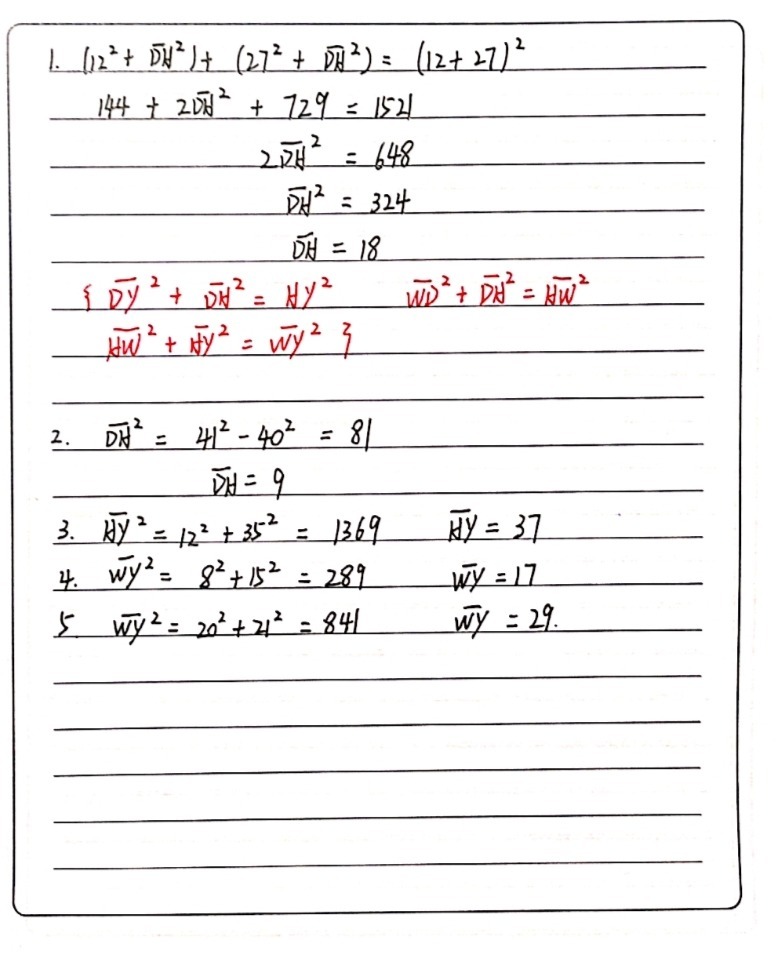 1. (12² + D̅H̅²) + (27² + D̅H̅²) = (12 + 27)²
144 + 2D̅H̅² + 729 = 1521
2D̅H̅² = 648
D̅H̅² = 324
D̅H̅ = 18
{ D̅Y̅² + D̅H̅² = HY² W̅D̅² + D̅H̅² = H̅W̅²
H̅W̅² + H̅Y̅² = W̅Y̅² }
2. D̅H̅² = 41² - 40² = 81
D̅H̅ = 9
3. H̅Y̅² = 12² + 35² = 1369 H̅Y̅ = 37
4. W̅Y̅² = 8² + 15² = 289 W̅Y̅ = 17
5. W̅Y̅² = 20² + 21² = 841 W̅Y̅ = 29.